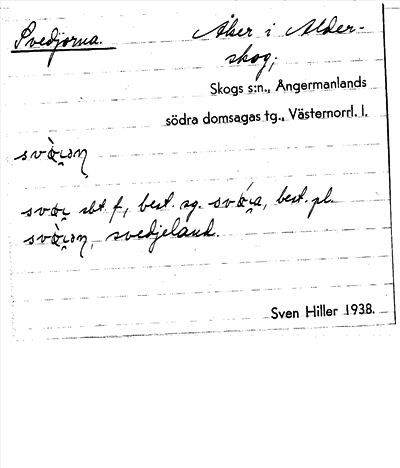 Svedjorna. Åker i Alder-
skog;
Skogs s:n., Ångermanlands
södra domsagas tg., Västernorrl. l.
sbt f, best. sg. best. pl.
svedjeland.
Sven Hiller 1938.